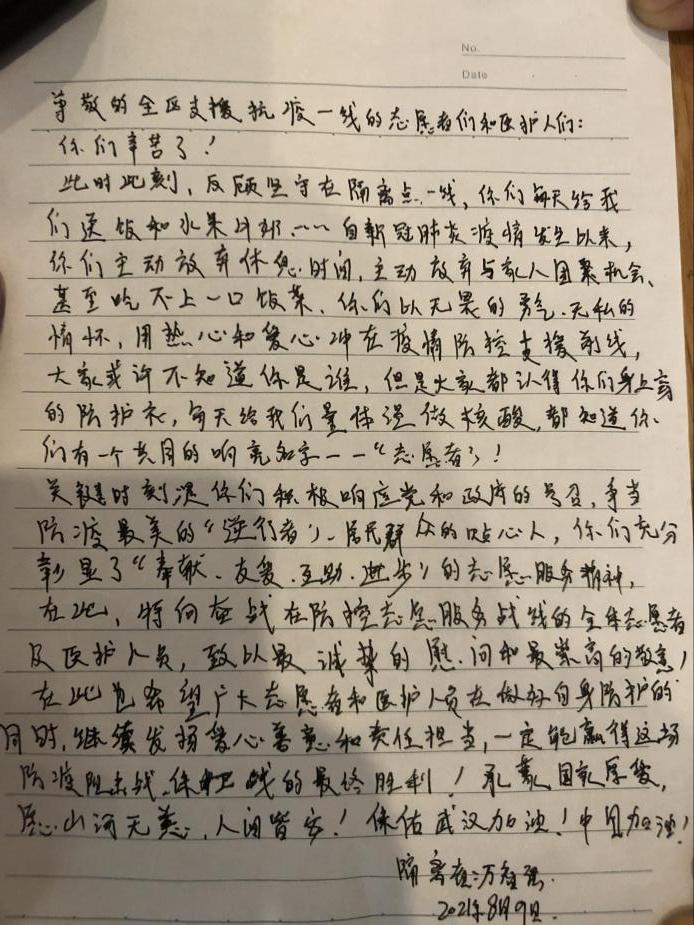 No.
Date
尊敬的全区支援抗疫一线的志愿者们和医护人们：
你们辛苦了！
此时此刻，反顾坚守在隔离点一线，你们每天给我
们送饭和水果……自新冠肺炎疫情发生以来，
你们主动放弃休息时间，主动放弃与家人团聚机会、
甚至吃不上一口饭菜、你们以无畏的勇气、无私的
情怀，用热心和爱心冲在疫情防控支援前线，
大家或许不知道你是谁，但是大家都认得你们身上穿
的防护衣，每天给我们量体温做核酸，都知道你
们有一个共同的响亮名字——“志愿者”！
关键时刻是你们积极响应党和政府的号召，争当
防疫最美的“逆行者”、居民群众的贴心人，你们充分
彰显了“奉献、友爱、互助、进步”的志愿服务精神，
在此，特向奋战在防控志愿服务战线的全体志愿者
及医护人员，致以最诚挚的慰问和最崇高的敬意！
在此也希望广大志愿者和医护人员在做好自身防护的
同时，继续发扬爱心善意和责任担当，一定能赢得这场
防疫阻击战、保卫战的最终胜利！承蒙国家厚爱，
愿山河无恙，人间皆安！保佑武汉加油！中国加油！
隔离者：
2021年8月9日.